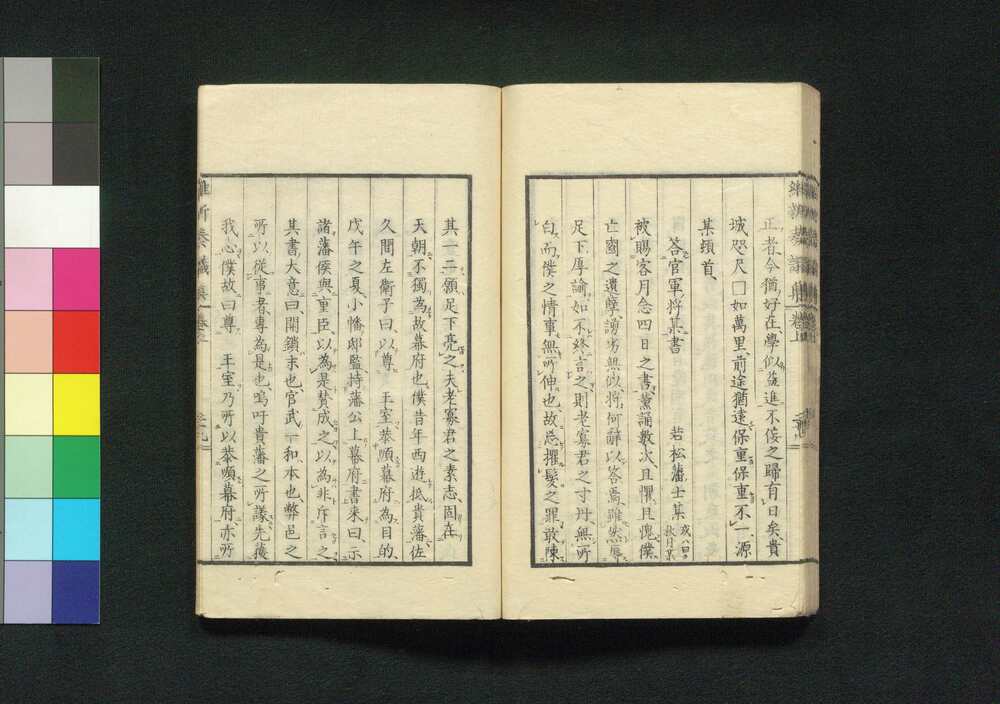 正者、今猶好在、學似益進、不佞之歸有日矣、貴
城咫尺□如萬里、前途猶遠、保重保重、不一、源
某頓首、
答官軍將某書
若松藩士某 或八曰秋月某
被賜客月念四日之書、薫誦數次、且懼、且愧、僕
亡國之遺孽、謭劣無似、將何辭以答焉、雖然辱
足下厚論、如不終言之、則老寡君之寸丹、無所
白、而僕之情事、無所伸也、故忘擢髮之罪、敢陳
其一二、願足下亮之、夫老寡君之素志、固在
天朝、不獨為故幕府也、僕昔年西遊、抵貴藩、佐
久間左衞子曰、以尊 王室恭順幕府為目的、
戊午之夏、小幡邸監、持藩公上幕府書来曰、示
諸藩侯與重臣、以為是賛成之、以為非斥言之、
其書大意曰、開鎖末也、官武一和、本也、弊邑之
所以從事者、專為是也、嗚呼貴藩之所議、先獲
我心、僕故曰尊 王室、乃所以恭順幕府、亦所